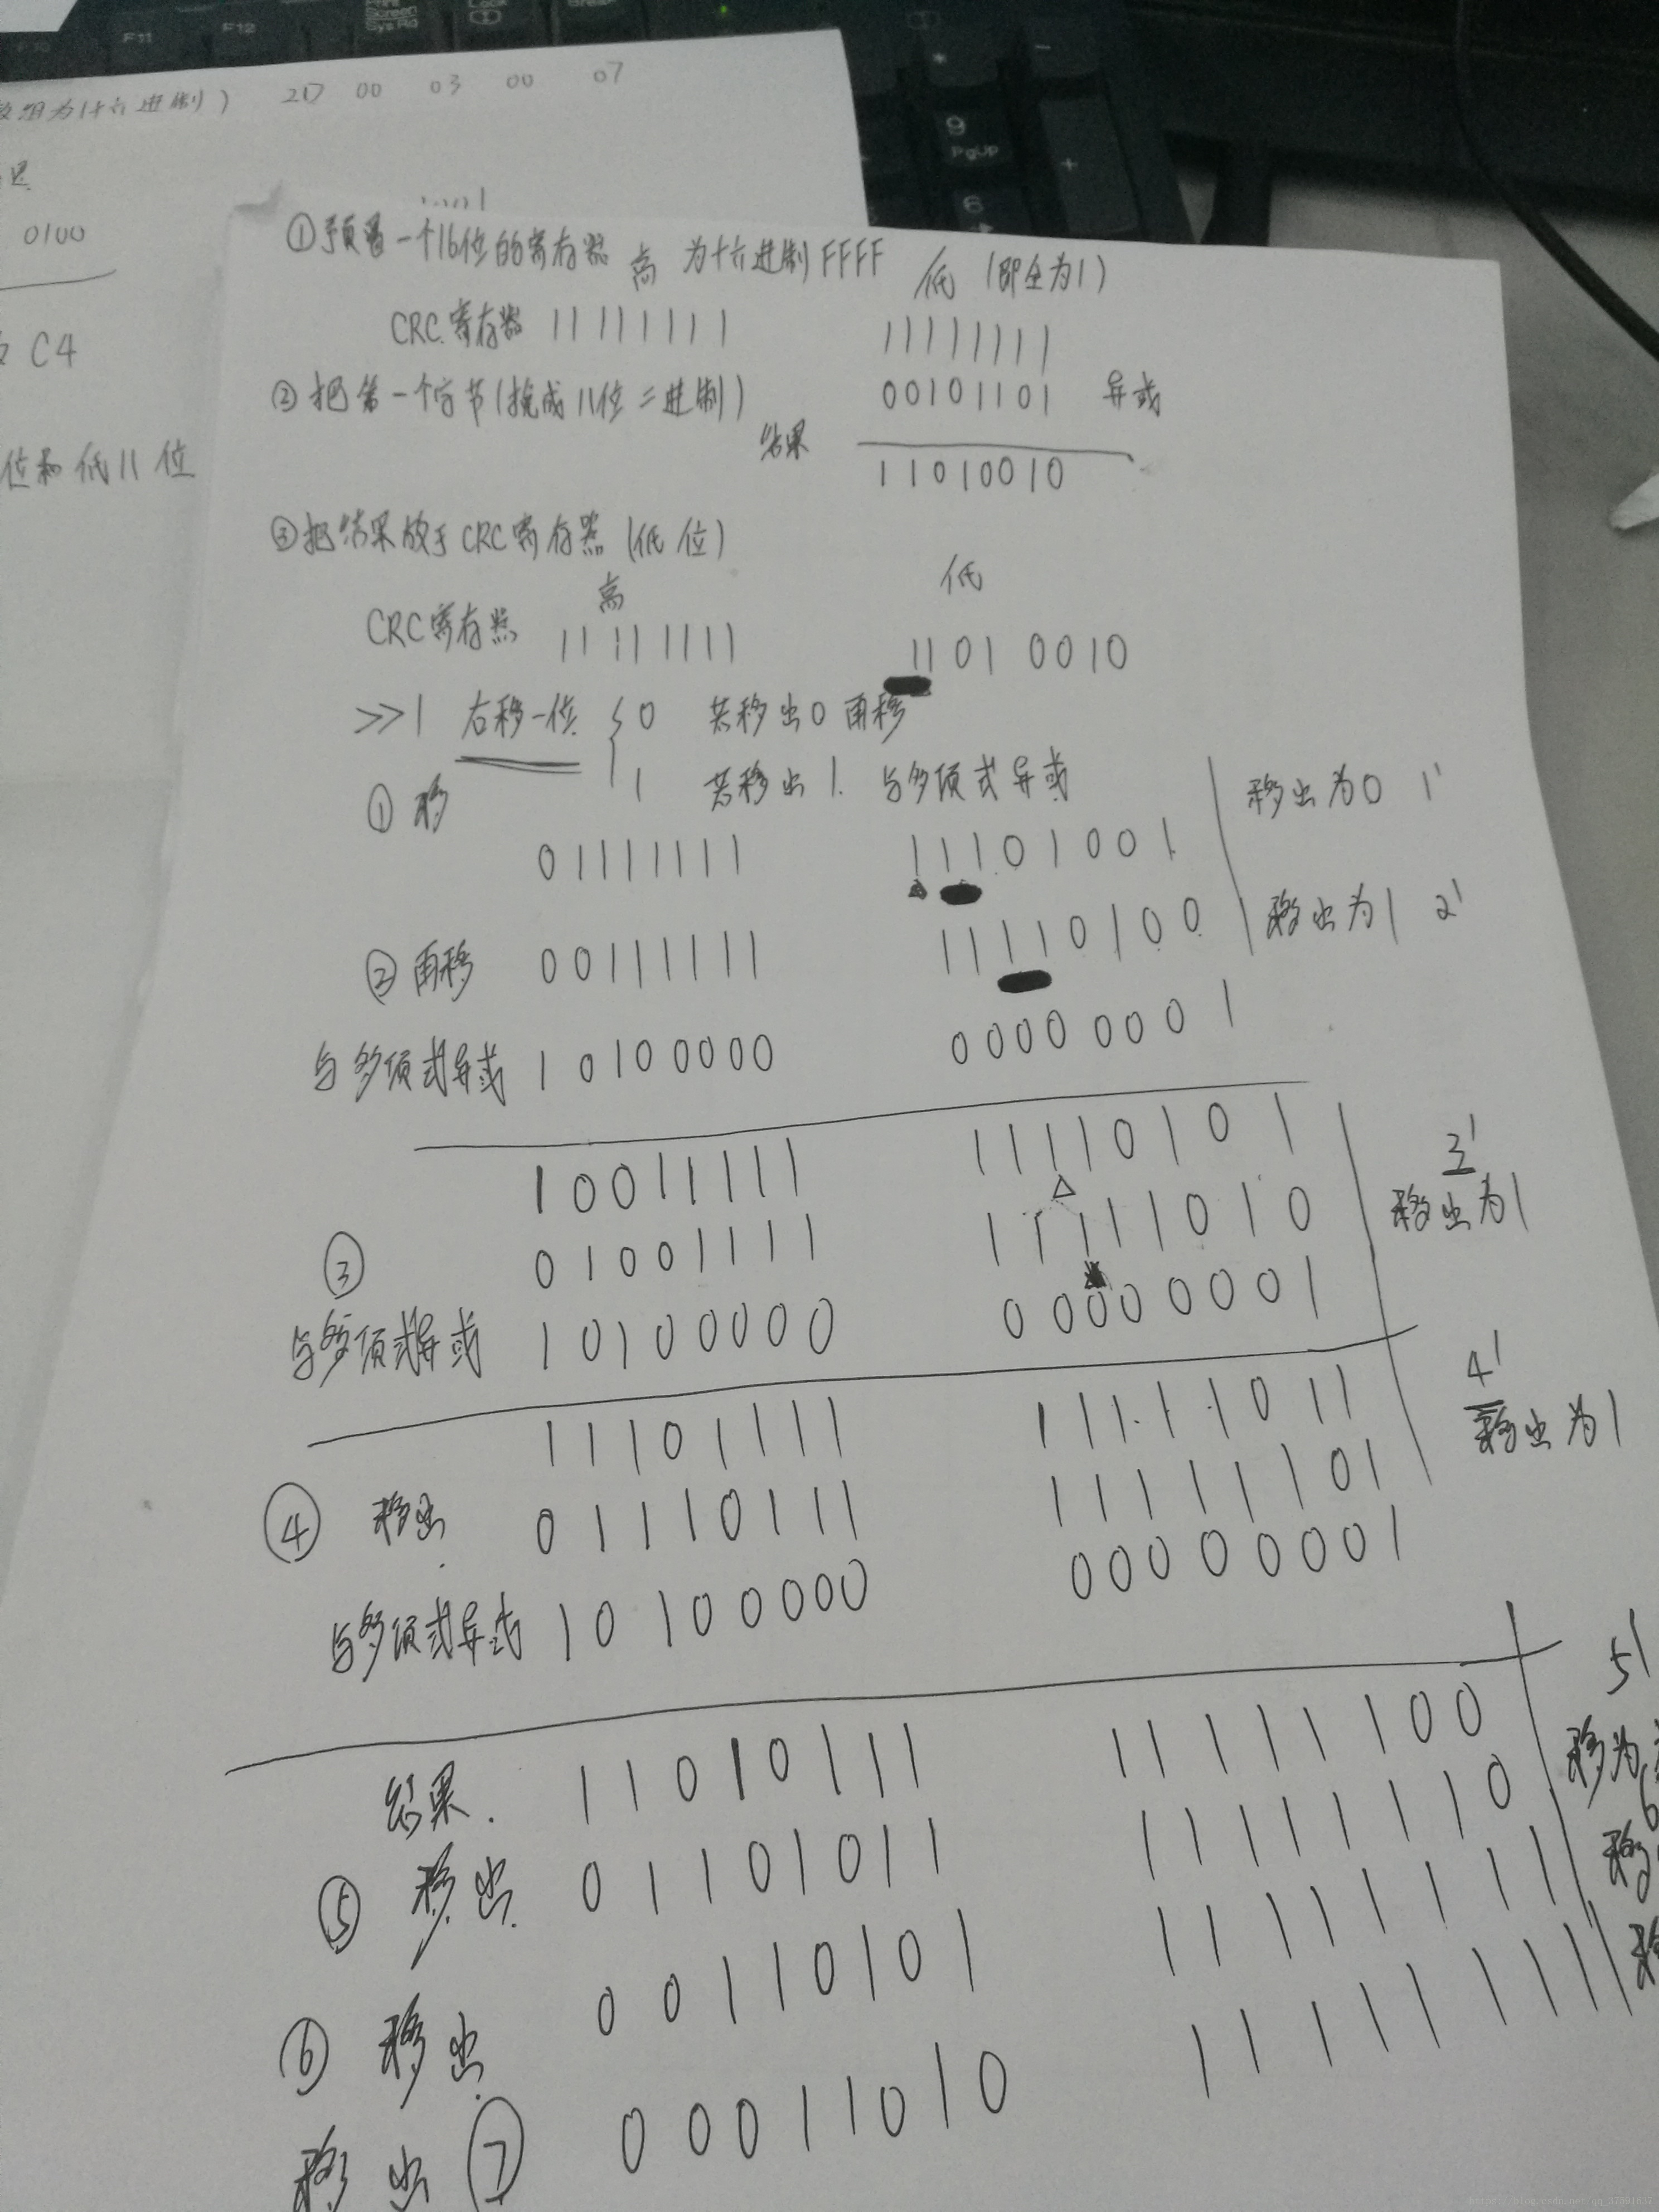 F11 F12 Print Screen SysRq
9 PgUp
+
6
数组为十六进制) 2D 00 03 00 07
0100
C4
位和低11位
①预置一个16位的寄存器 高 为十六进制FFFF 低 (即全为1)
CRC寄存器 11111111 11111111
②把第一个字节(换成11位二进制) 00101101 异或
结果 11010010
③把结果放于CRC寄存器(低位)
高 低
CRC寄存器 11111111 1101 0010
>>1 右移一位 0 若移出0再移
1 若移出1 与多项式异或
①移 移出为0 1'
01111111 11101001
②再移 00111111 11110100 移出为1 2'
与多项式异或 10100000 00000001
10011111 11110101 3'
③ 01001111 11111010 移出为1
与多项式异或 10100000 00000001
11101111 11111011 4'
移出为1
④ 移出 01110111 11111101
与多项式异或 10100000 00000001
5'
结果. 11010111 11111100 移为
⑤ 移出. 01101011 11111110 移
⑥ 移出. 00110101 11111111
移出⑦ 00011010 11111111